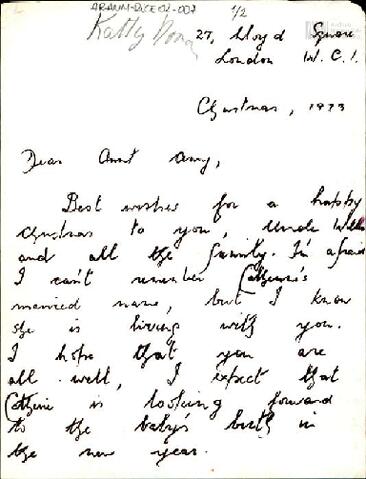 ARANM-DICE 02-007 1/2
Katty Dona
27, Lloyd Square
London W.C.1.
Christmas, 1973
Dear Aunt Amy,
Best wishes for a happy
Christmas to you, Uncle Willi
and all the family. I'm afraid
I can't remember Catherine's
married name, but I know
she is living with you.
I hope that you are
all well, I expect that
Catherine is looking forward
to the baby's birth in
the new year.